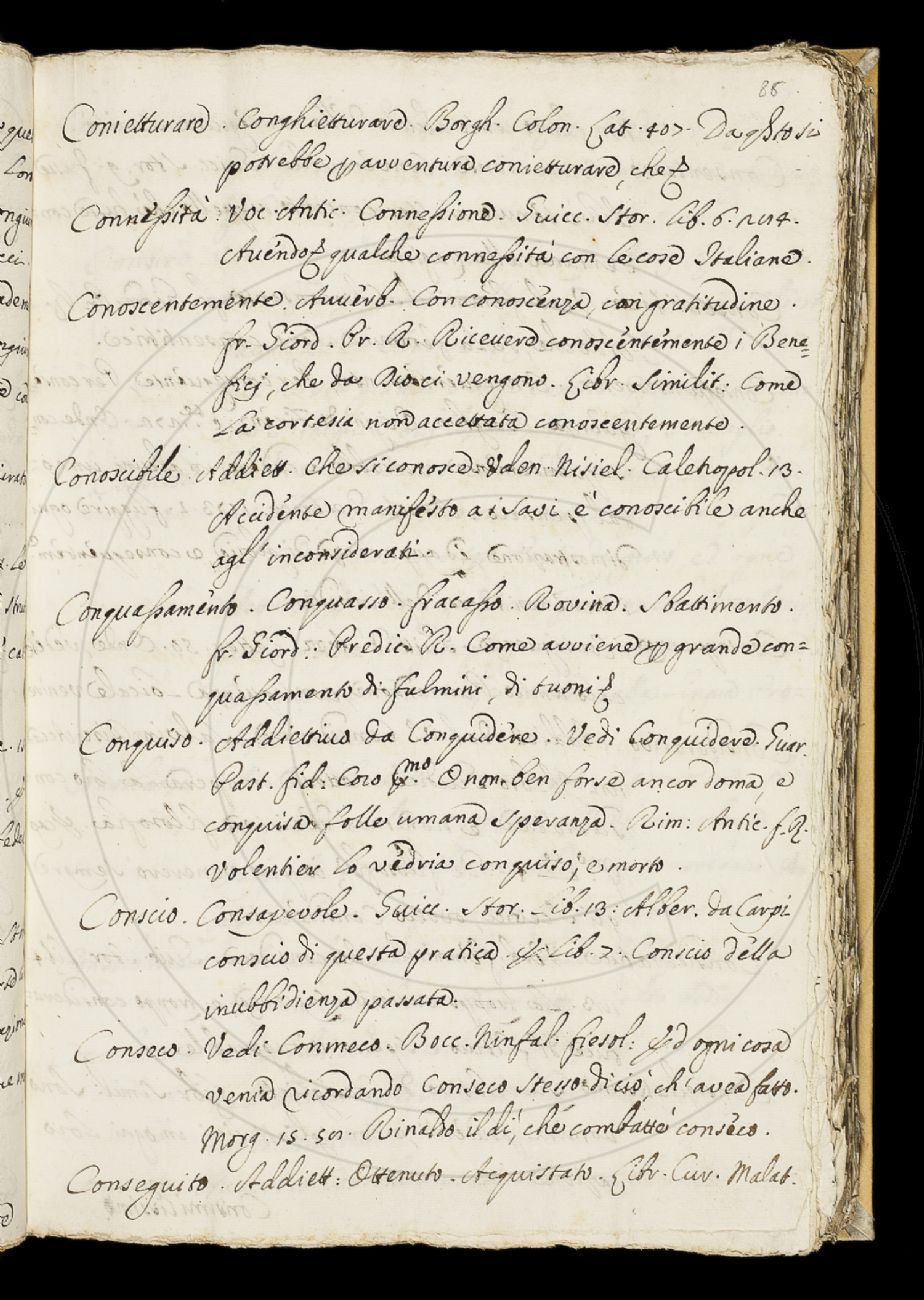 88
Conietturare. Conghietturare. Borgh. Colon. Lat. 407. Da qsto si
potrebbe p avventura conietturare, che
Connessità. Voc. Antic. Connessione. Guicc. Stor. lib. 6.
Avendo qualche connessità con le cose Italiane.
Conoscentemente. Avverb. Con conoscenza, con gratitudine.
fr. Giord. Pr. R. Ricevere conoscentemente i Bene=
ficj, che da Dio ci vengono. Libr. Similit: Come
La cortesia non accettata conoscentemente.
Conoscibile. Addiett. Che si conosce. Uden. Nisiel. Caletropol. 13.
Accidente manifesto a i Savi è conoscibile anche
agl' inconsiderati.
Conquassamento. Conquasso. fracasso. Rovina. Sbattimento.
fr. Giord. Predic. R. Come avviene p grande con=
quassamento di fulmini, di tuoni
Conquiso. Addiettivo da Conquidere. Vedi Conquidere. Guar.
Past. fid: Coro O non ben forse ancor doma, e
conquisa folle umana speranza. Rim: Antic. f. R.
Volentier lo vedria conquiso, e morto.
Conscio. Consapevole. Guicc. Stor. Lib. 13: Alber. da Carpi
conscio di questa pratica. Lib. 7. Conscio della
inubbidienza passata.
Conseco. Vedi Conmeco. Bocc. Ninfal. fiesol: Ed ogni cosa
venia ricordando Conseco stesso di ciò, ch' avea fatto.
Morg. 15. 50. Rinaldo il dì, che combatté conseco.
Conseguito. Addiett: Ottenuto. Acquistato. Libr. Cur. Malat.